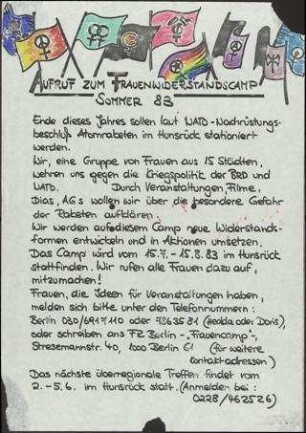 AUFRUF ZUM FRAUENWIDERSTANDSCAMP
SOMMER 83
Ende dieses Jahres sollen laut NATO-Nachrüstungs-
beschluß Atomraketen im Hunsrück stationiert
werden.
Wir, eine Gruppe von Frauen aus 15 Städten,
wehren uns gegen die Kriegspolitik der BRD und
NATO. Durch Veranstaltungen, Filme,
Dias, AGs wollen wir über die besondere Gefahr
der Raketen aufklären.
Wir werden auf diesem Camp neue Widerstands-
formen entwickeln und in Aktionen umsetzen.
Das Camp wird vom 15.7. - 15.8.83 im Hunsrück
stattfinden. Wir rufen alle Frauen dazu auf,
mitzumachen!
Frauen, die Ideen für Veranstaltungen haben,
melden sich bitte unter den Telefonnummern:
Berlin 030/ oder (Hedda oder Doris),
oder schreiben ans FZ Berlin - "Frauencamp",
Stresemannstr. 40, 1000 Berlin 61 (für weitere
Kontaktadressen)
Das nächste überregionale Treffen findet vom
2. - 5.6. im Hunsrück statt. (Anmelden bei:
0228/462526)